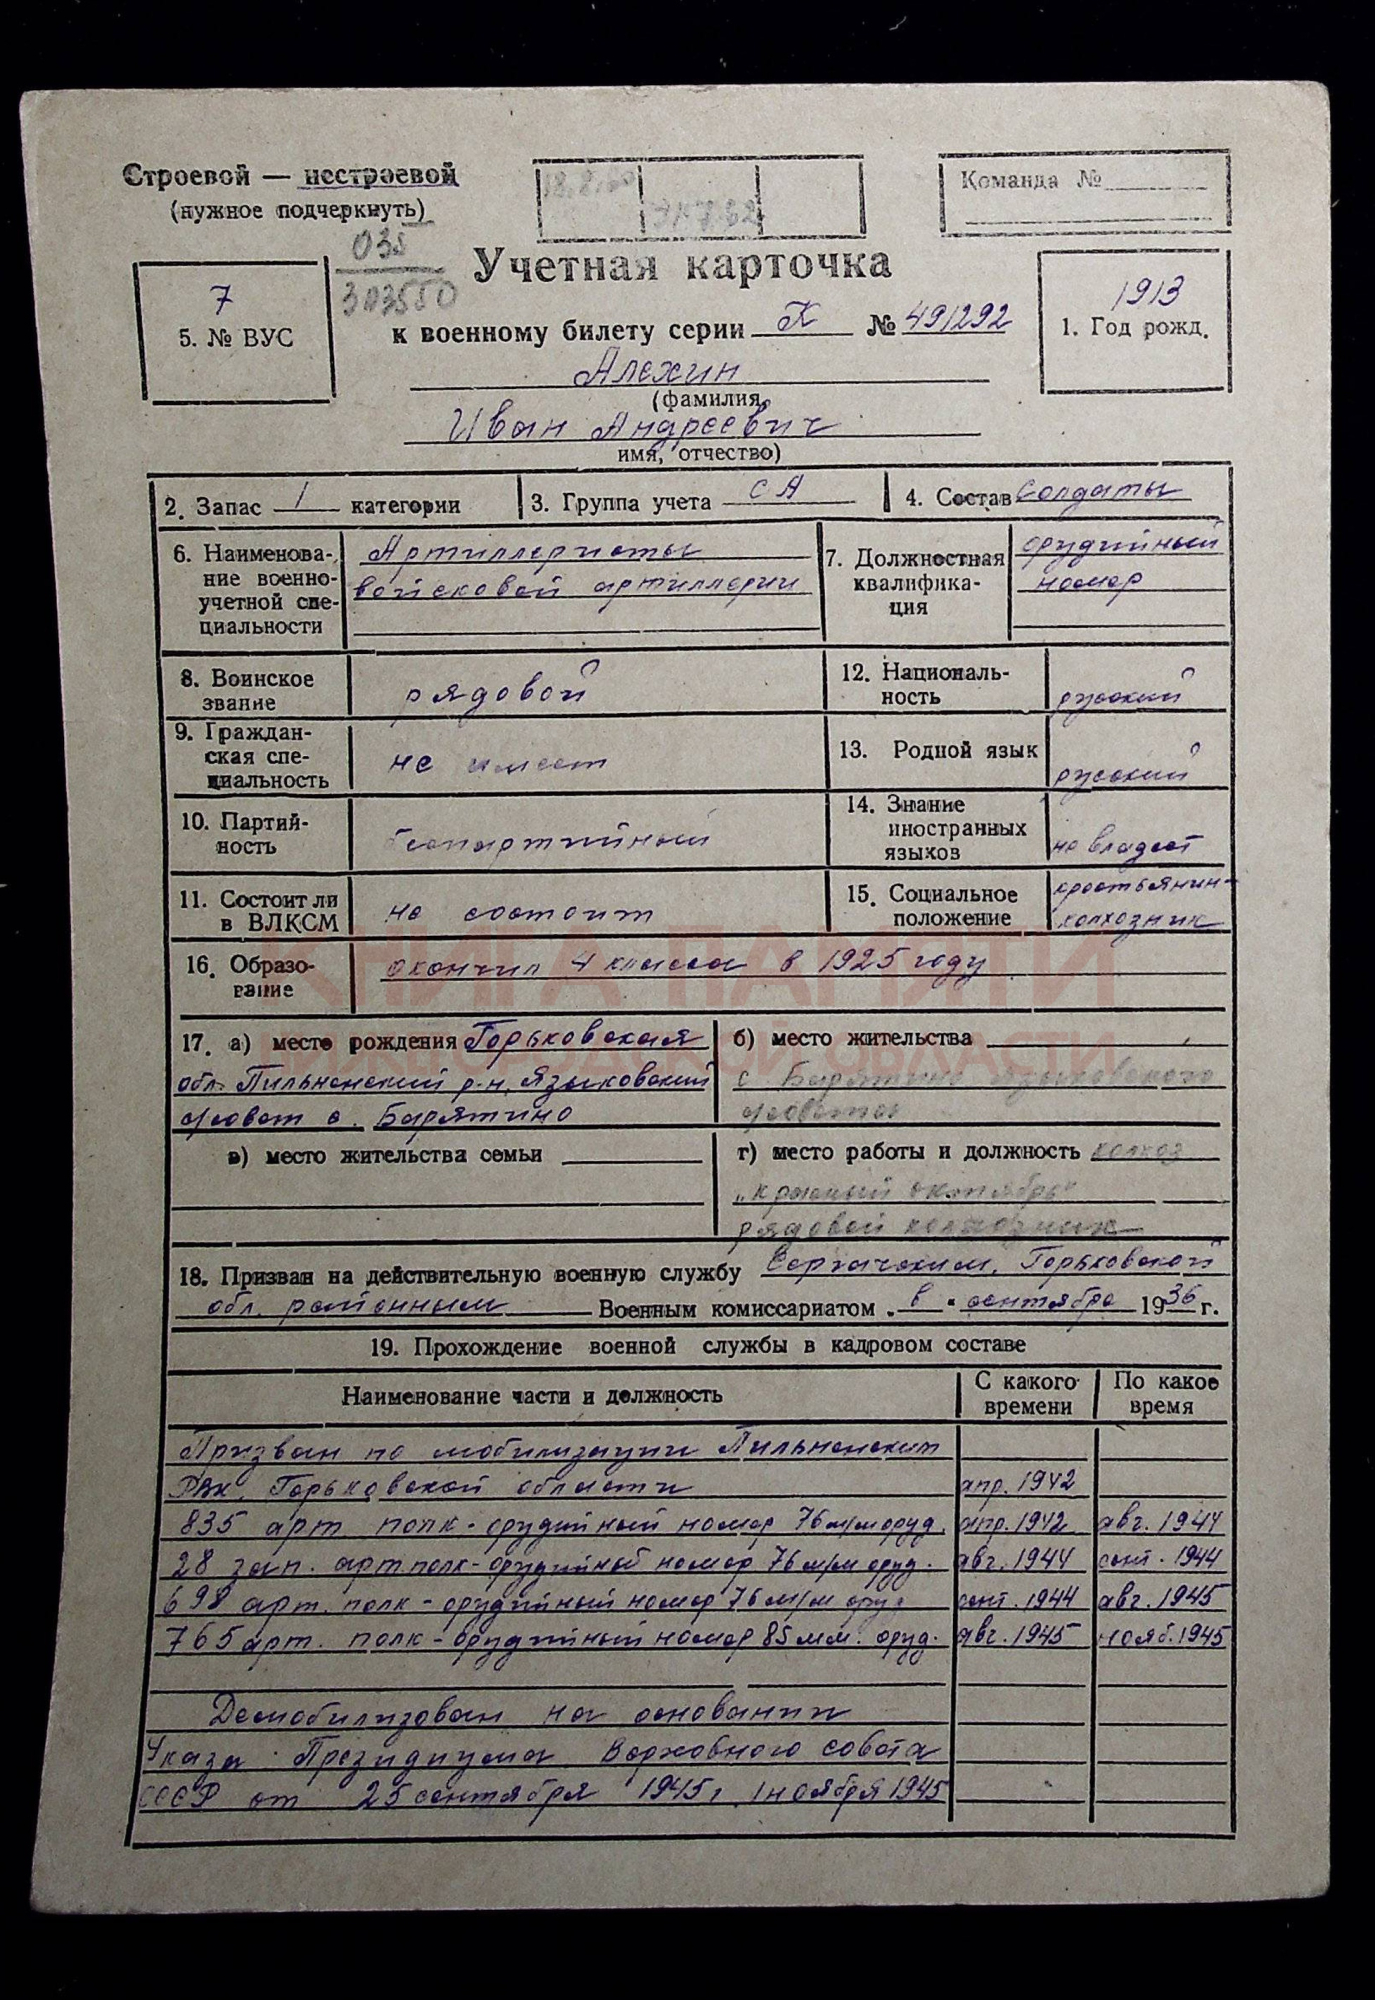 Строевой — нестроевой
(нужное подчеркнуть)
18.8.60
Команда №
035
303550
Учетная карточка
7
5. № ВУС
к военному билету серии К № 491292
1913
1. Год рожд.
Алехин
(фамилия,
Иван Андреевич
имя, отчество)
2. Запас 1 категории
3. Группа учета СА
4. Состав солдаты
6. Наименова-
ние военно-
учетной спе-
циальности
Артиллеристы
войсковой артиллерии
7. Должностная
квалифика-
ция
орудийный
номер
8. Воинское
звание
рядовой
12. Националь-
ность
русский
9. Граждан-
ская спе-
циальность
не имеет
13. Родной язык
русский
10. Партий-
ность
беспартийный
14. Знание
иностранных
языков
не владеет
11. Состоит ли
в ВЛКСМ
не состоит
15. Социальное
положение
крестьянин-
колхозник
16. Образо-
вание
окончил 4 класса в 1925 году
КНИГА ПАМЯТИ
НИЖЕГОРОДСКОЙ ОБЛАСТИ
17. а) место рождения Горьковская
обл. Пильненский р-н, Языковский
совет с. Барятино
б) место жительства
с Барятино Языковского
совета
в) место жительства семьи
г) место работы и должность колхоз
„красный октябрь"
рядовой колхозник
18. Призван на действительную военную службу Сергачским, Горьковской
обл. районным Военным комиссариатом „ в " сентябре 1936 г.
19. Прохождение военной службы в кадровом составе
Наименование части и должность
С какого времени
По какое время
Призван по мобилизации Пильненским
РВК. Горьковской области апр. 1942
835 арт полк - орудийный номер 76 м/м оруд. апр. 1942 авг. 1944
28 зап. арт полк - орудийный номер 76 м/м оруд. авг. 1944 сент. 1944
698 арт. полк - орудийный номер 76 м/м оруд сент. 1944 авг. 1945
765 арт. полк - орудийный номер 85 мм. оруд. авг. 1945 нояб. 1945
Демобилизован на основании
Указа Президиума Верховного совета
СССР от 25 сентября 1945 г. 1 ноября 1945